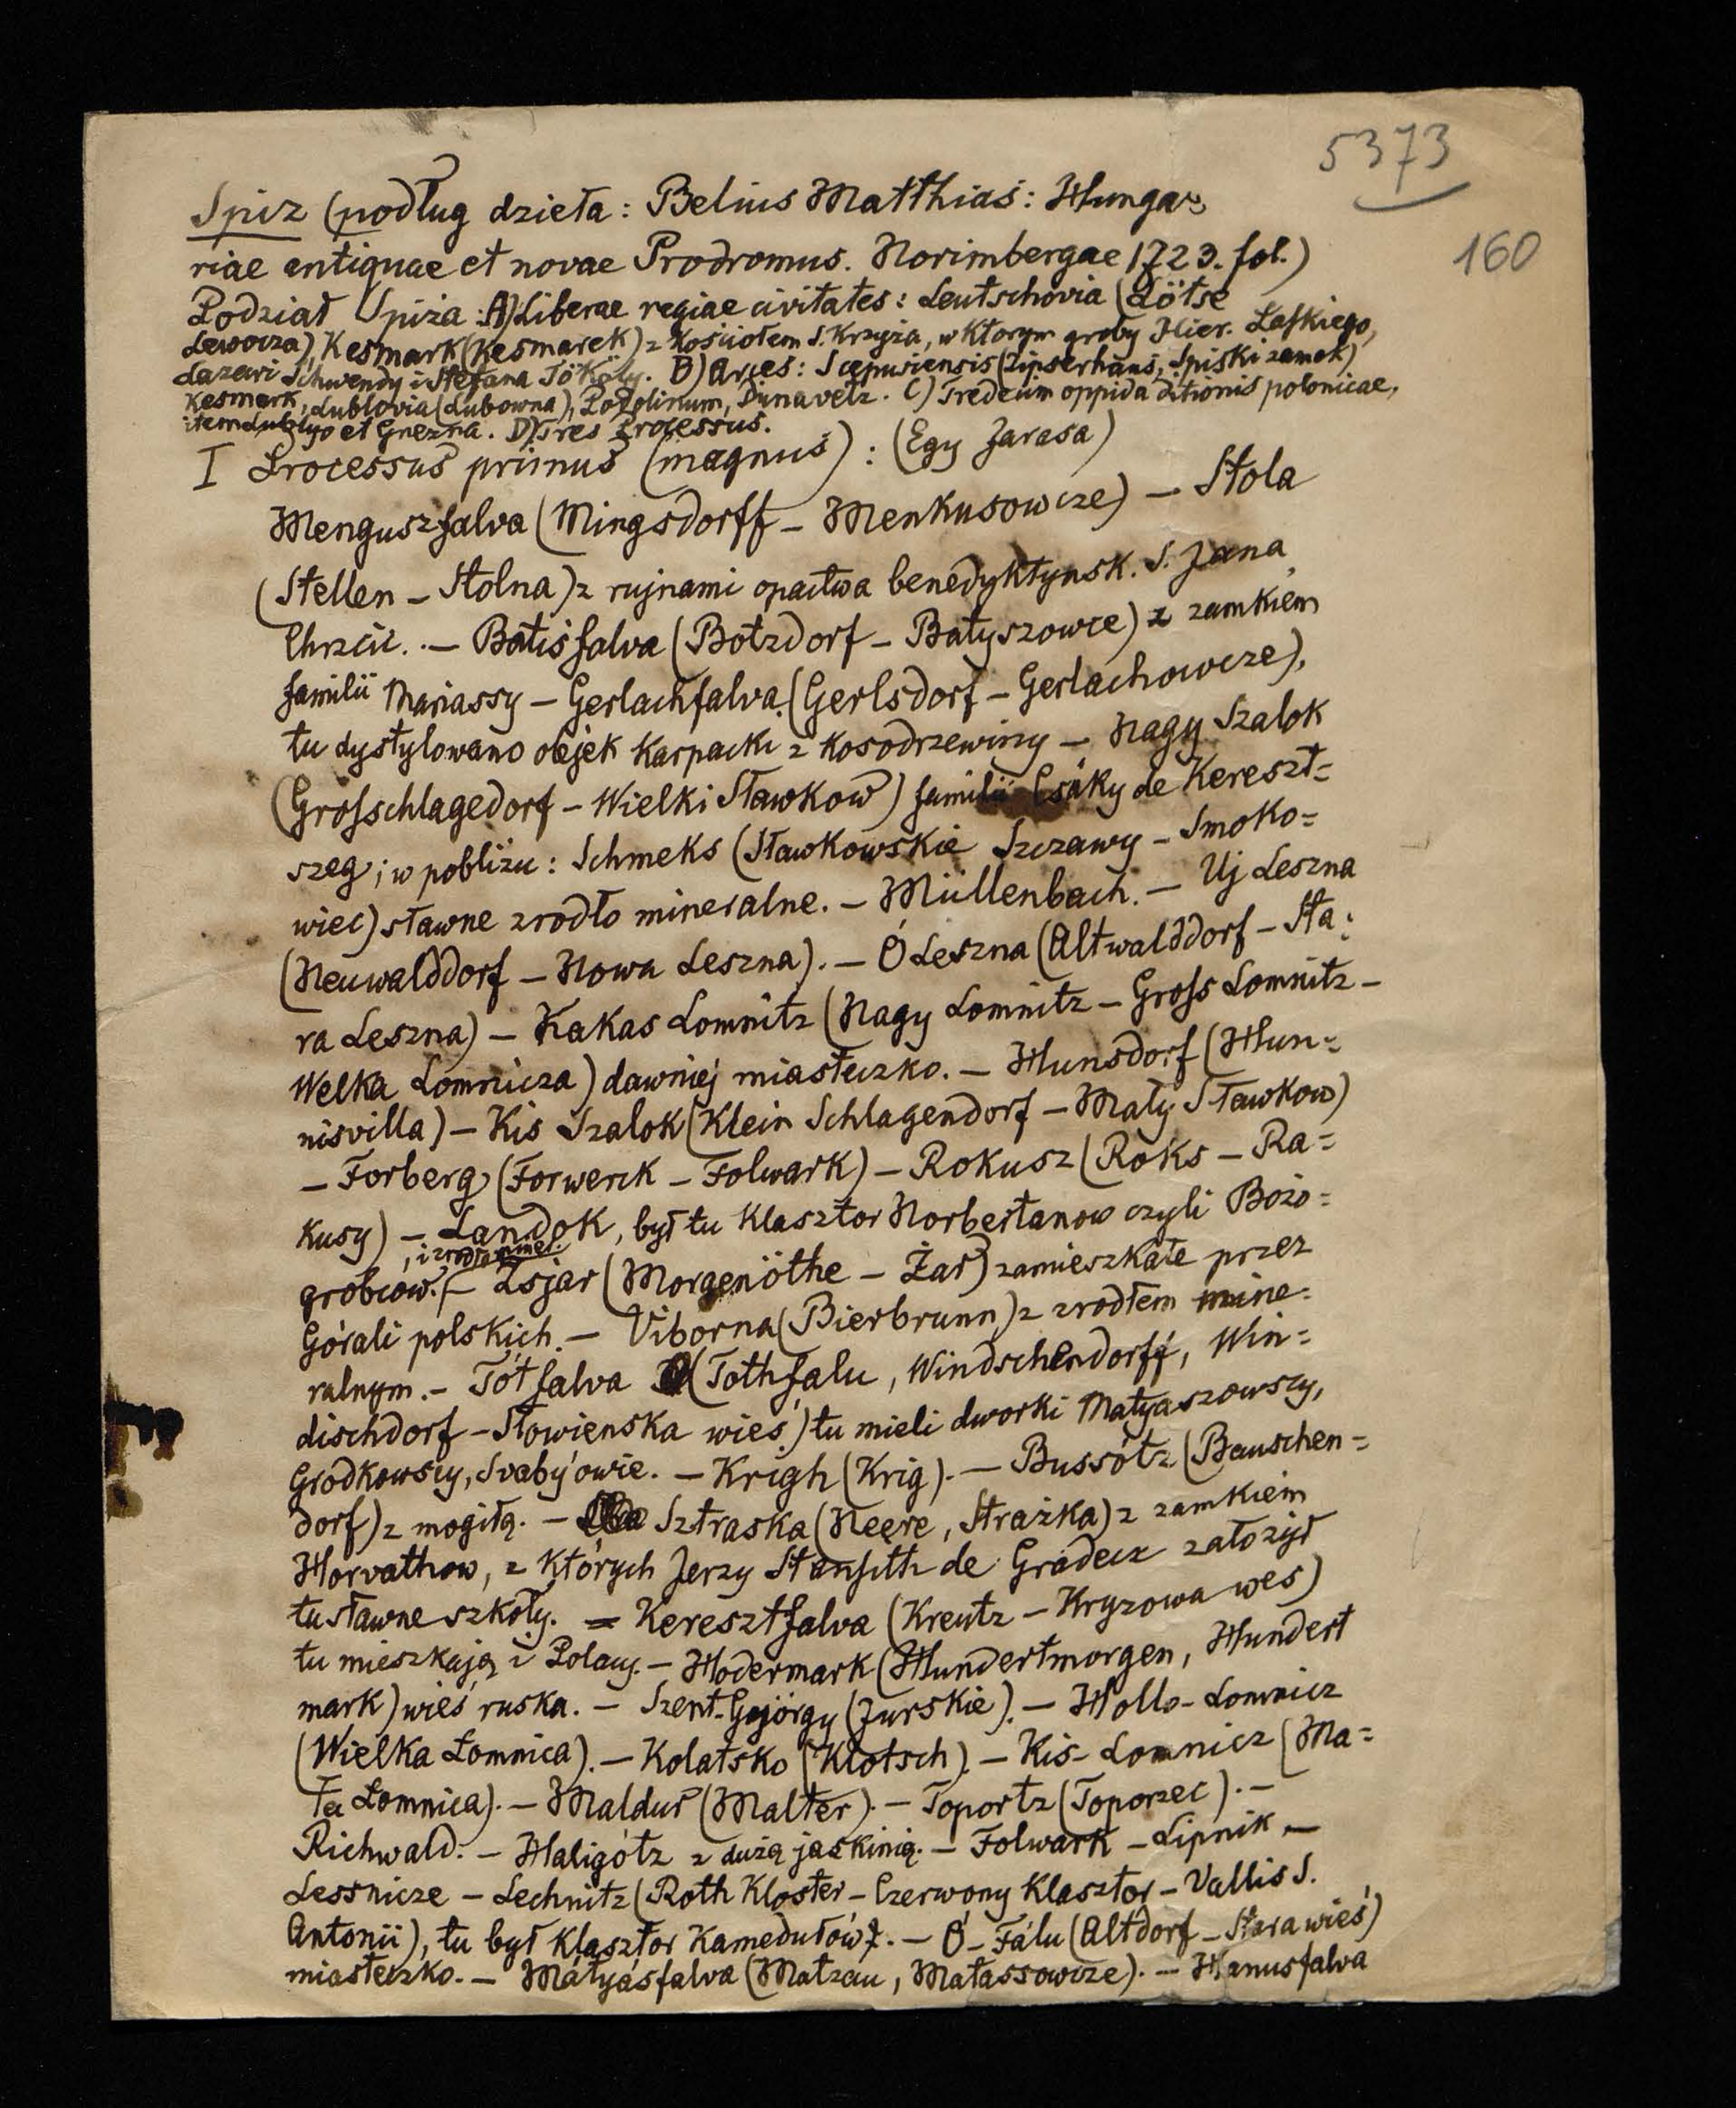 5373
160
Spiz (podług dzieła: Belius Matthias: Hunga=
riae antiquae et novae Prodromus. Norimbergae 1723. fol.)
Podział Spiża: A) Liberae regiae civitates: Leutschovia (Lötse
Lewocza), Kesmark (Kesmarek) z kościołem S. Krzyża, w którym groby Hier. Laſkiego,
Lazari Schwendy i Stefana Tököly. B) Arces: Scepusiensis (Zipserhaus, Spiski zamek)
Kesmark, Lublovia (Lubowna), Podolinum, Dunavetz. C) Tredecim oppida ditionis polonicae,
item Lublyo et Gnezna. D) Tres Processus.
I Processus primus (magnus): (Egy Jarasa)
Menguszfalva (Mingsdorff - Menkusowcze) - Stola
(Stellen - Stolna) z rujnami opactwa benedyktynsk. S. Jana
Chrzcic. - Botisfalva (Botzdorf - Batyszowce) z zamkiem
familii Mariassy - Gerlachfalva (Gerlsdorf - Gerlachowcze),
tu dystylowano olejek karpacki z kosodrzewiny - Nagy Szalok
(Groſschlagedorf - Wielki Sławkow) familii Csáky de Kereszt=
szeg; w pobliżu: Schmeks (Sławkowskie Szczawy - Smoko=
wiec) sławne zrodło mineralne. - Müllenbach. - Uj Leszna
(Neuwalddorf - Nowa Leszna). - Ó Leszna (Altwalddorf - Sta=
ra Leszna) - Kakas Lomnitz (Nagy Lomnitz - Groſs Lomnitz -
Welka Lomnicza) dawniej miasteczko. - Hunsdorf (Hun=
nisvilla) - Kis Szalok (Klein Schlagendorf - Mały Sławkow)
- Forberg (Forwerck - Folwark) - Rokusz (Roks - Ra=
kusy) - Landok, był tu klasztor Norbertanow czyli Bożo=
, i zrodło mner.
grobcow. - Zsjar (Morgenöthe - Żar) zamieszkałe przez
Górali polskich. - Viborna (Bierbrunn) z zrodłem mine=
ralnym. - Tótfalva (Tothfalu, Windschendorff, Win=
dischdorf - Słowienska wieś) tu mieli dworki Matyaszowscy,
Grodkowscy, Svaby'owie. - Krigh (Krig). - Bussótz (Bauschen=
dorf) z mogiłą. - Sztraska (Neere, Strażka) z zamkiem
Horvathow, z których Jerzy Stansith de Gradecz założył
tu sławne szkoły. = Keresztfalva (Kreutz - Kryzowa wes)
tu mieszkają i Polacy. - Hodermark (Hundertmorgen, Hundert
mark) wieś ruska. - Szent-Gyórgy (Jurskie). - Hollo-Lomnicz
(Wielka Łomnica). - Kolatsko (Klotsch). - Kis-Lomnicz (Ma=
ła Łomnica). - Maldur (Malter). - Toportz (Toporzec). -
Richwald. - Haligótz z dużą jaskinią. - Folwark - Lipnik -
Lessnicze - Lechnitz (Roth Kloster - Czerwony Klasztor - Vallis S.
Antonii), tu był klasztor Kamedułów. - Ó-Fálu (Altdorf - Stara wieś)
miasteczko. - Mátyásfalva (Matzau, Matassowcze). - Hanusfalva